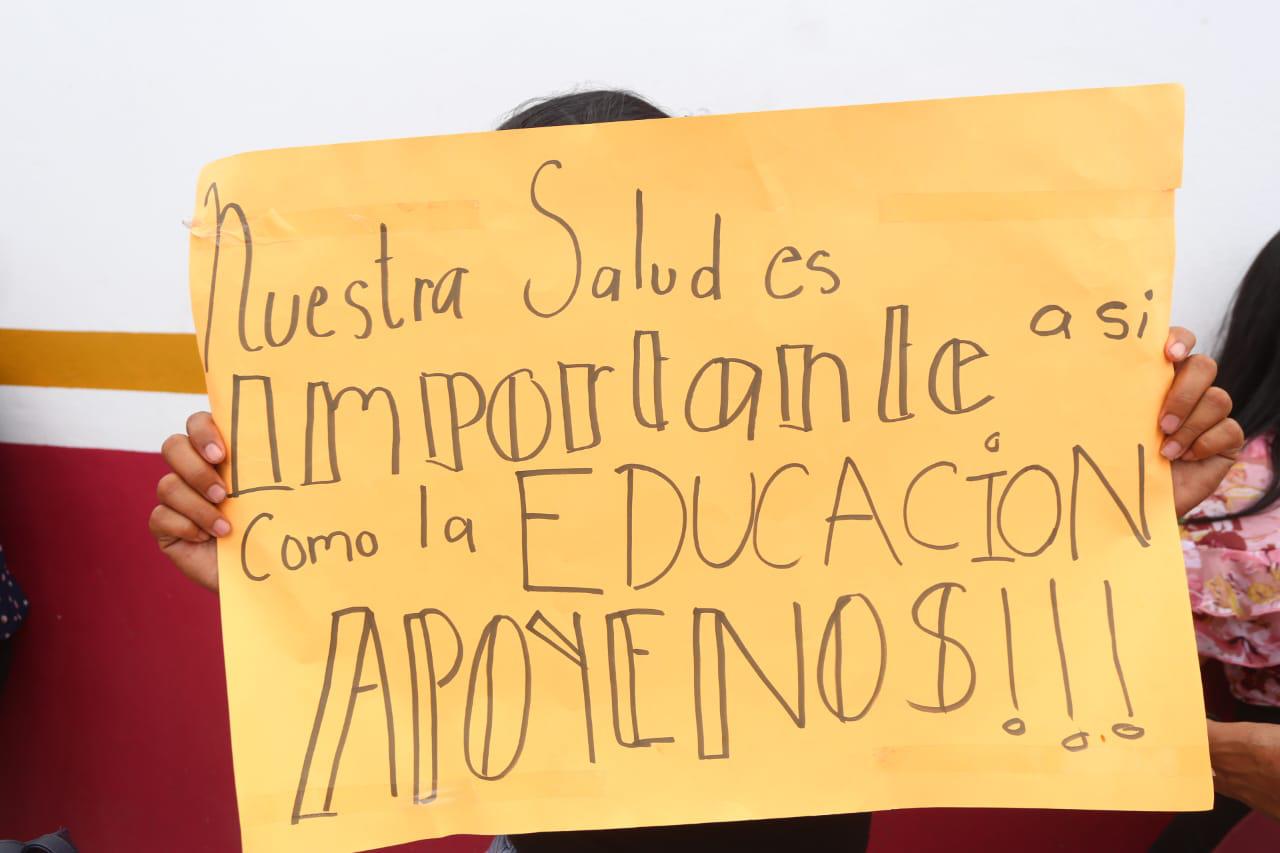 Nuestra Salud es
Importante asi
Como la EDUCACIÓN
APOYENOS!!!